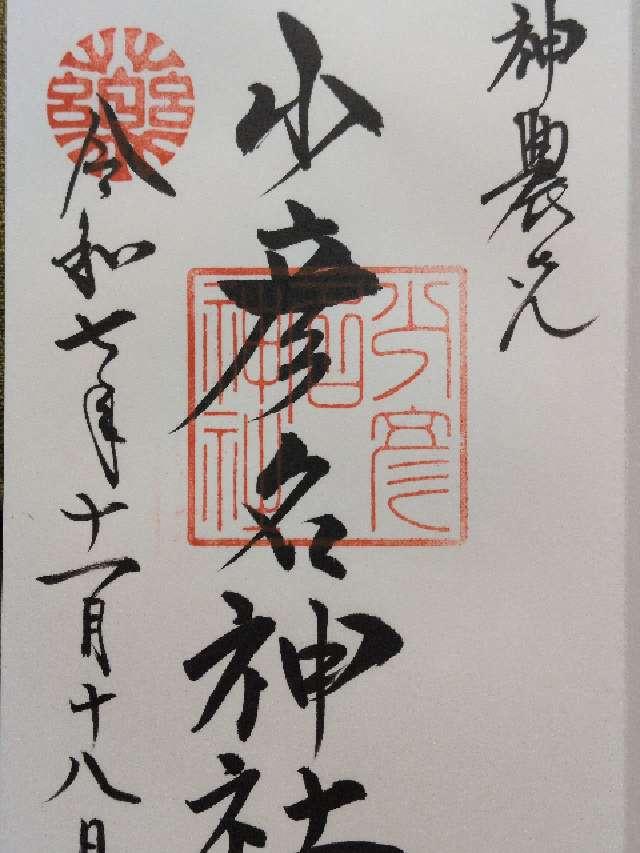 神農炎
少彦名神社
少彦名神社
令和七年十一月十八日
薬